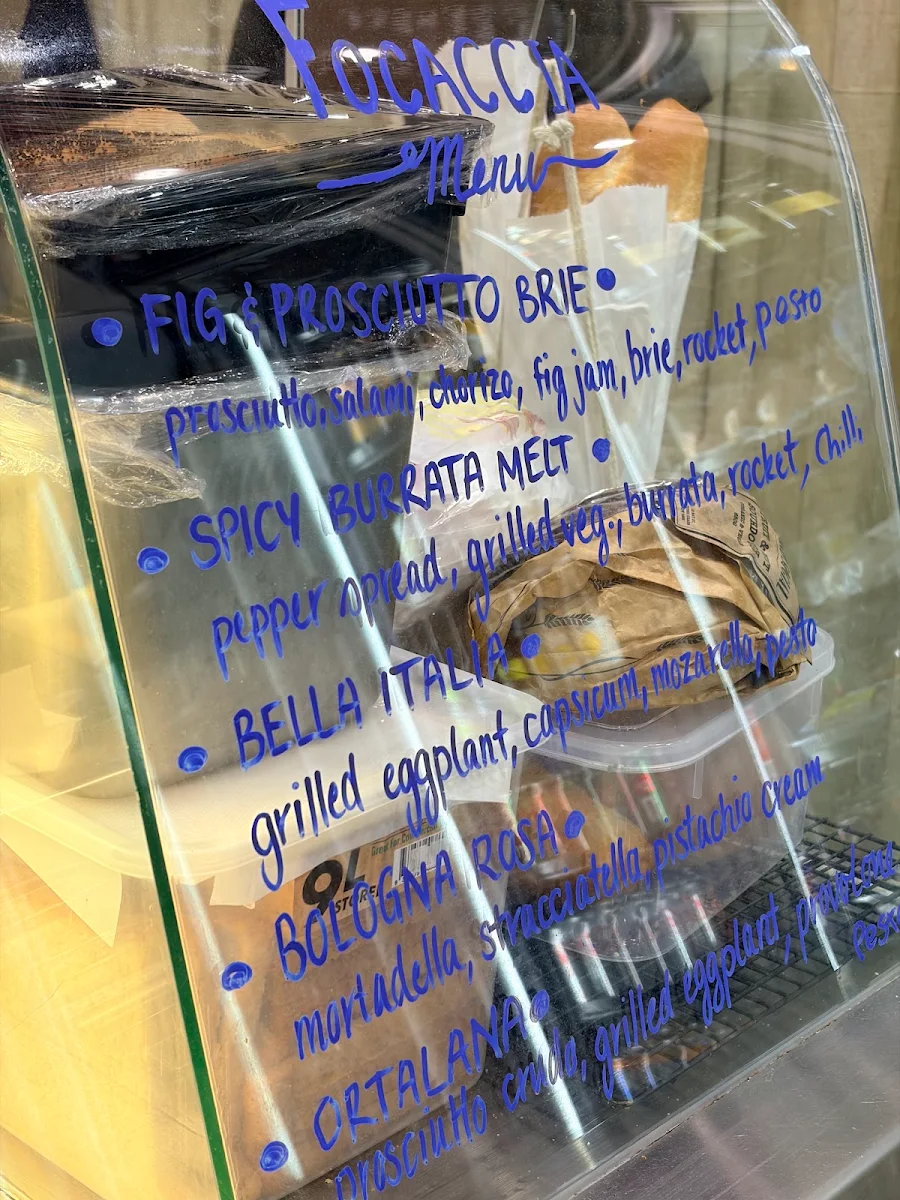 FOCACCIA
Menu
• FIG & PROSCIUTTO BRIE •
prosciutto, salami, chorizo, fig jam, brie, rocket, pesto
• SPICY BURRATA MELT •
pepper spread, grilled veg., burrata, rocket, chilli
• BELLA ITALIA •
grilled eggplant, capsicum, mozarella, pesto
• BOLOGNA ROSA •
mortadella, stracciatella, pistachio cream
• ORTALANA •
prosciutto crudo, grilled eggplant, provolone
pesto
9L
STORE